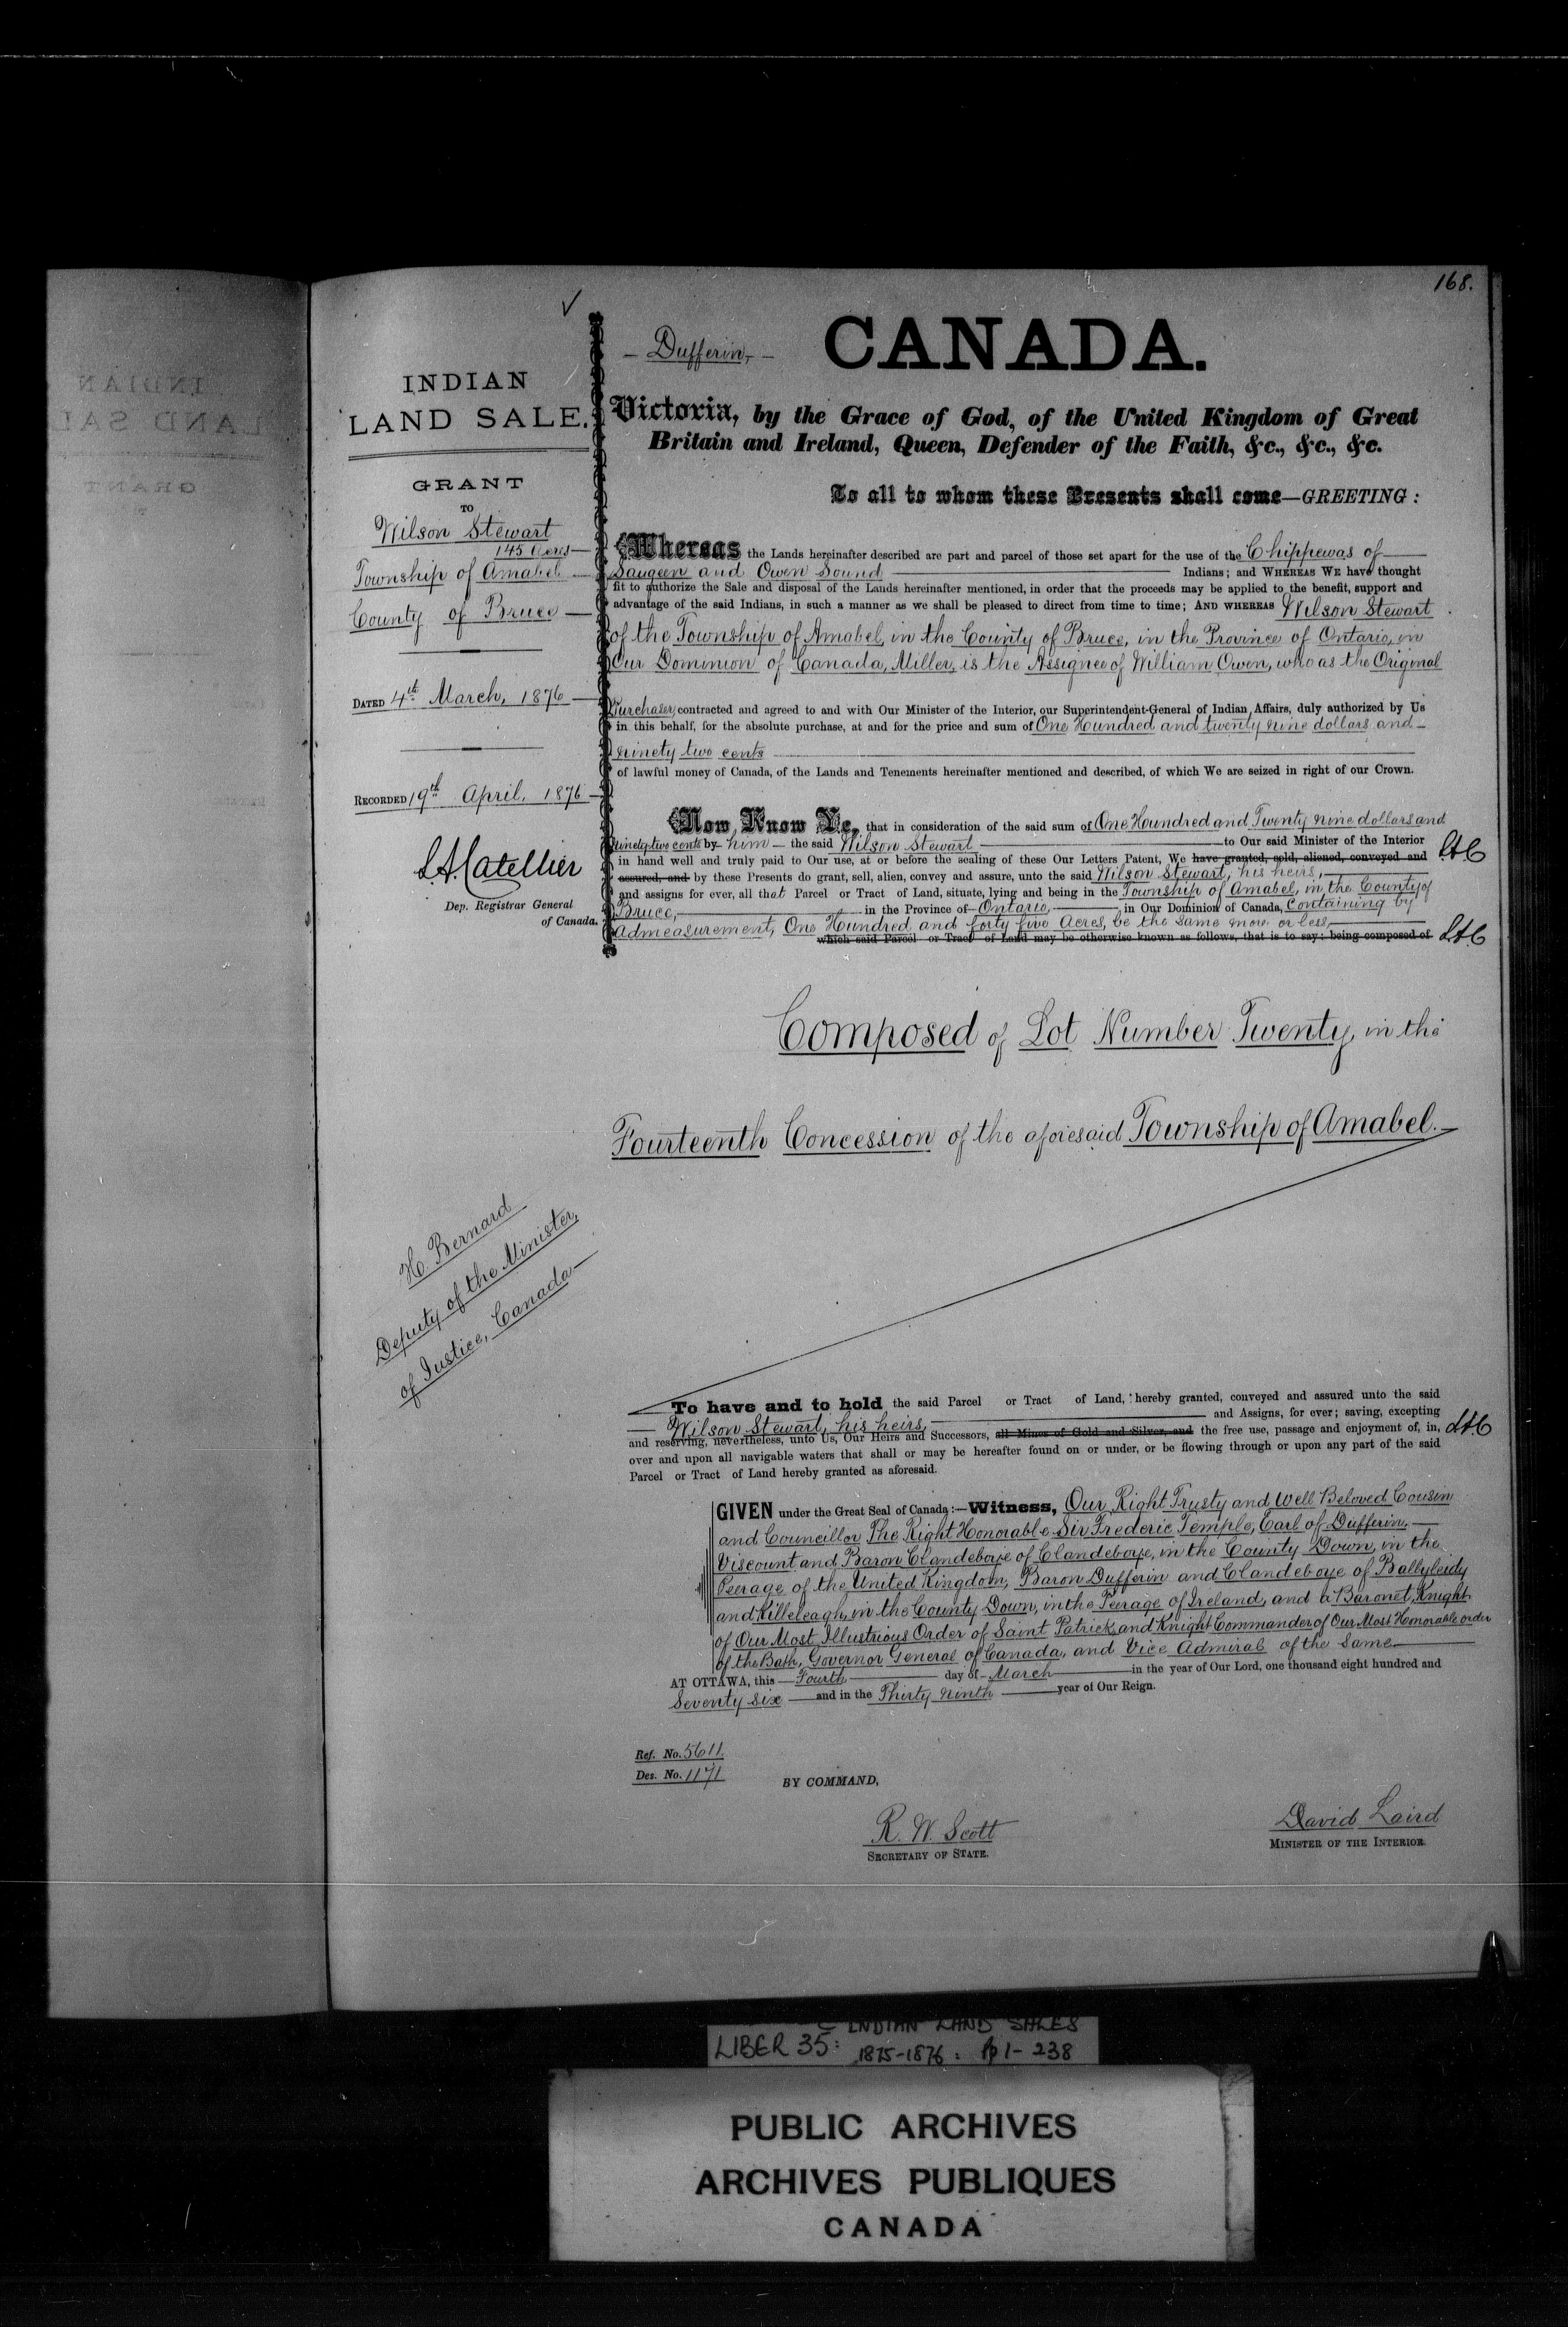 168.
INDIAN
LAND SALE.
GRANT
TO
Wilson Stewart
145 Acres
Township of Amabel
County of Bruce
DATED 4th March, 1876
RECORDED 19th April, 1876
L.A. Catellier
Dep. Registrar General
of Canada.
H. Bernard
Deputy of the Minister,
of Justice, Canada
Dufferin,
CANADA.
Victoria, by the Grace of God, of the United Kingdom of Great
Britain and Ireland, Queen, Defender of the Faith, &c., &c., &c.
To all to whom these Presents shall come—GREETING:
Whereas the Lands hereinafter described are part and parcel of those set apart for the use of the Chippewas of
Saugeen and Owen Sound Indians; and WHEREAS WE have thought
fit to authorize the Sale and disposal of the Lands hereinafter mentioned, in order that the proceeds may be applied to the benefit, support and
advantage of the said Indians, in such a manner as we shall be pleased to direct from time to time; AND WHEREAS Wilson Stewart
of the Township of Amabel, in the County of Bruce, in the Province of Ontario, in
Our Dominion of Canada, Miller, is the Assignee of William Owen, who as the Original
Purchaser, contracted and agreed to and with Our Minister of the Interior, our Superintendent-General of Indian Affairs, duly authorized by Us
in this behalf, for the absolute purchase, at and for the price and sum of One Hundred and twenty nine dollars and
ninety two cents
of lawful money of Canada, of the Lands and Tenements hereinafter mentioned and described, of which We are seized in right of our Crown.
Now Know Ye, that in consideration of the said sum of One Houndred and Twenty nine dollars and
ninety two cents by him the said Wilson Stewart to Our said Minister of the Interior
in hand well and truly paid to Our use, at or before the sealing of these Our Letters Patent, We have granted, sold, aliened, conveyed and LAC
assured, and by these Presents do grant, sell, alien, convey and assure, unto the said Wilson Stewart, his heirs,
and assigns for ever, all that Parcel or Tract of Land, situate, lying and being in the Township of Amabel, in the County of
Bruce, in the Province of Ontario, in Our Dominion of Canada, Containing by
Admeasurement, One Hundred and forty five Acres, be the same more or less,
which said Parcel or Tract of Land may be otherwise known as follows, that is to say: being composed of LAC
Composed of Lot Number Twenty, in the
Fourteenth Concession of the aforesaid Township of Amabel.
To have and to hold the said Parcel or Tract of Land, hereby granted, conveyed and assured unto the said
Wilson Stewart, his heirs, and Assigns, for ever; saving, excepting
and reserving, nevertheless, unto Us, Our Heirs and Successors, all Mines of Gold and Silver, and the free use, passage and enjoyment of, in, LAC
over and upon all navigable waters that shall or may be hereafter found on or under, or be flowing through or upon any part of the said
Parcel or Tract of Land hereby granted as aforesaid.
GIVEN under the Great Seal of Canada:—Witness, Our Right Trusty and Well Beloved Cousin
and Councillor The Right Honorable Sir Frederic Temple, Earl of Dufferin,
Viscount and Baron Clandeboye of Clandeboye, in the County Down, in the
Peerage of the United Kingdom, Baron Dufferin and Clandeboye of Ballyleidy
and Killeleagh, in the County Down, in the Peerage of Ireland, and a Baronet, Knight
of Our Most Illustrious Order of Saint Patrick, and Knight Commander of Our Most Honorable order
of the Bath, Governor General of Canada, and Vice Admiral of the Same
AT OTTAWA, this Fourth day of March in the year of Our Lord, one thousand eight hundred and
Seventy six and in the Thirty ninth year of Our Reign.
Ref. No. 5611
Des. No. 1171
BY COMMAND,
R. W. Scott
SECRETARY OF STATE.
David Laird
MINISTER OF THE INTERIOR.
LIBER 35: INDIAN LAND SALES
1875-1876: pp 1-238
PUBLIC ARCHIVES
ARCHIVES PUBLIQUES
CANADA